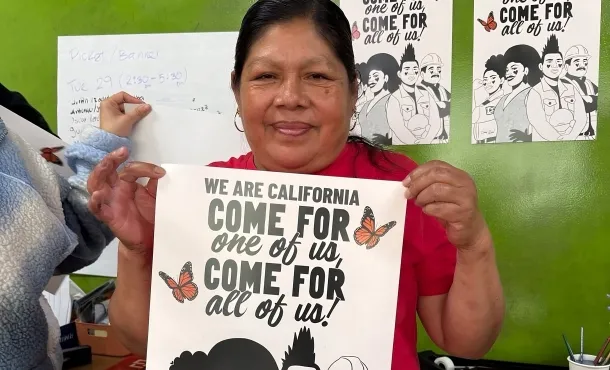 Ticket (Banner)
TUE 29 (2:30 - 5:30)
COME FOR
one of us,
COME FOR
all of us!
one of us,
COME FOR
all of us!
WE ARE CALIFORNIA
COME FOR
one of us,
COME FOR
all of us!